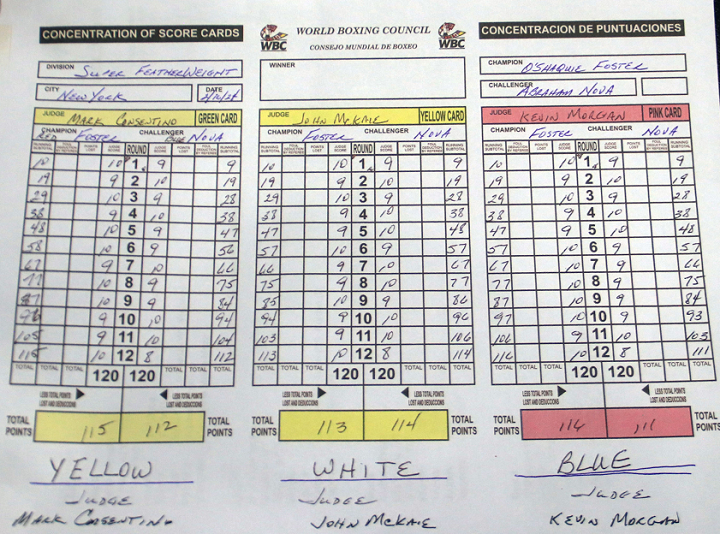 CONCENTRATION OF SCORE CARDS
WBC
WORLD BOXING COUNCIL
CONSEJO MUNDIAL DE BOXEO
WBC
CONCENTRACION DE PUNTUACIONES
DIVISION SUPER FEATHERWEIGHT
CITY NEW YORK DATE
WINNER
CHAMPION O'SHAQUIE FOSTER
CHALLENGER ABRAHAM NOVA
JUDGE MARK CONSENTINO GREEN CARD
RED CHAMPION FOSTER CHALLENGER BLUE NOVA
RUNNING SUBTOTAL FOUL DEDUCTION BY REFEREE POINTS LOST JUDGE SCORE ROUND JUDGE SCORE POINTS LOST FOUL DEDUCTION BY REFEREE RUNNING SUBTOTAL
10 10 1 9 9
19 9 2 10 19
29 10 3 9 28
38 9 4 10 38
48 10 5 9 47
58 10 6 9 56
67 9 7 10 66
77 10 8 9 75
87 10 9 9 84
96 9 10 10 94
105 9 11 10 104
115 10 12 8 112
TOTAL TOTAL TOTAL 120 120 TOTAL TOTAL TOTAL
LESS TOTAL POINTS LOST AND DEDUCCIONS LESS TOTAL POINTS LOST AND DEDUCCIONS
TOTAL POINTS 115 112 TOTAL POINTS
YELLOW
JUDGE
MARK CONSENTINO
JUDGE JOHN McKAIE YELLOW CARD
CHAMPION FOSTER CHALLENGER NOVA
RUNNING SUBTOTAL FOUL DEDUCTION BY REFEREE POINTS LOST JUDGE SCORE ROUND JUDGE SCORE POINTS LOST FOUL DEDUCTION BY REFEREE RUNNING SUBTOTAL
10 10 1 9 9
19 9 2 10 19
29 10 3 9 28
38 9 4 10 38
47 9 5 10 48
57 10 6 9 57
66 9 7 10 67
75 9 8 10 77
85 10 9 9 86
94 9 10 10 96
103 9 11 10 106
113 10 12 8 114
TOTAL TOTAL TOTAL 120 120 TOTAL TOTAL TOTAL
LESS TOTAL POINTS LOST AND DEDUCCIONS LESS TOTAL POINTS LOST AND DEDUCCIONS
TOTAL POINTS 113 114 TOTAL POINTS
WHITE
JUDGE
JOHN McKAIE
JUDGE KEVIN MORGAN PINK CARD
CHAMPION FOSTER CHALLENGER NOVA
RUNNING SUBTOTAL FOUL DEDUCTION BY REFEREE POINTS LOST JUDGE SCORE ROUND JUDGE SCORE POINTS LOST FOUL DEDUCTION BY REFEREE RUNNING SUBTOTAL
10 10 1 9 9
19 9 2 10 19
29 10 3 9 28
38 9 4 10 38
47 9 5 10 48
57 10 6 9 57
67 10 7 9 66
77 10 8 9 75
87 10 9 9 84
97 10 10 9 93
106 9 11 10 103
116 10 12 8 111
TOTAL TOTAL TOTAL 120 120 TOTAL TOTAL TOTAL
LESS TOTAL POINTS LOST AND DEDUCCIONS LESS TOTAL POINTS LOST AND DEDUCCIONS
TOTAL POINTS 116 111 TOTAL POINTS
BLUE
JUDGE
KEVIN MORGAN